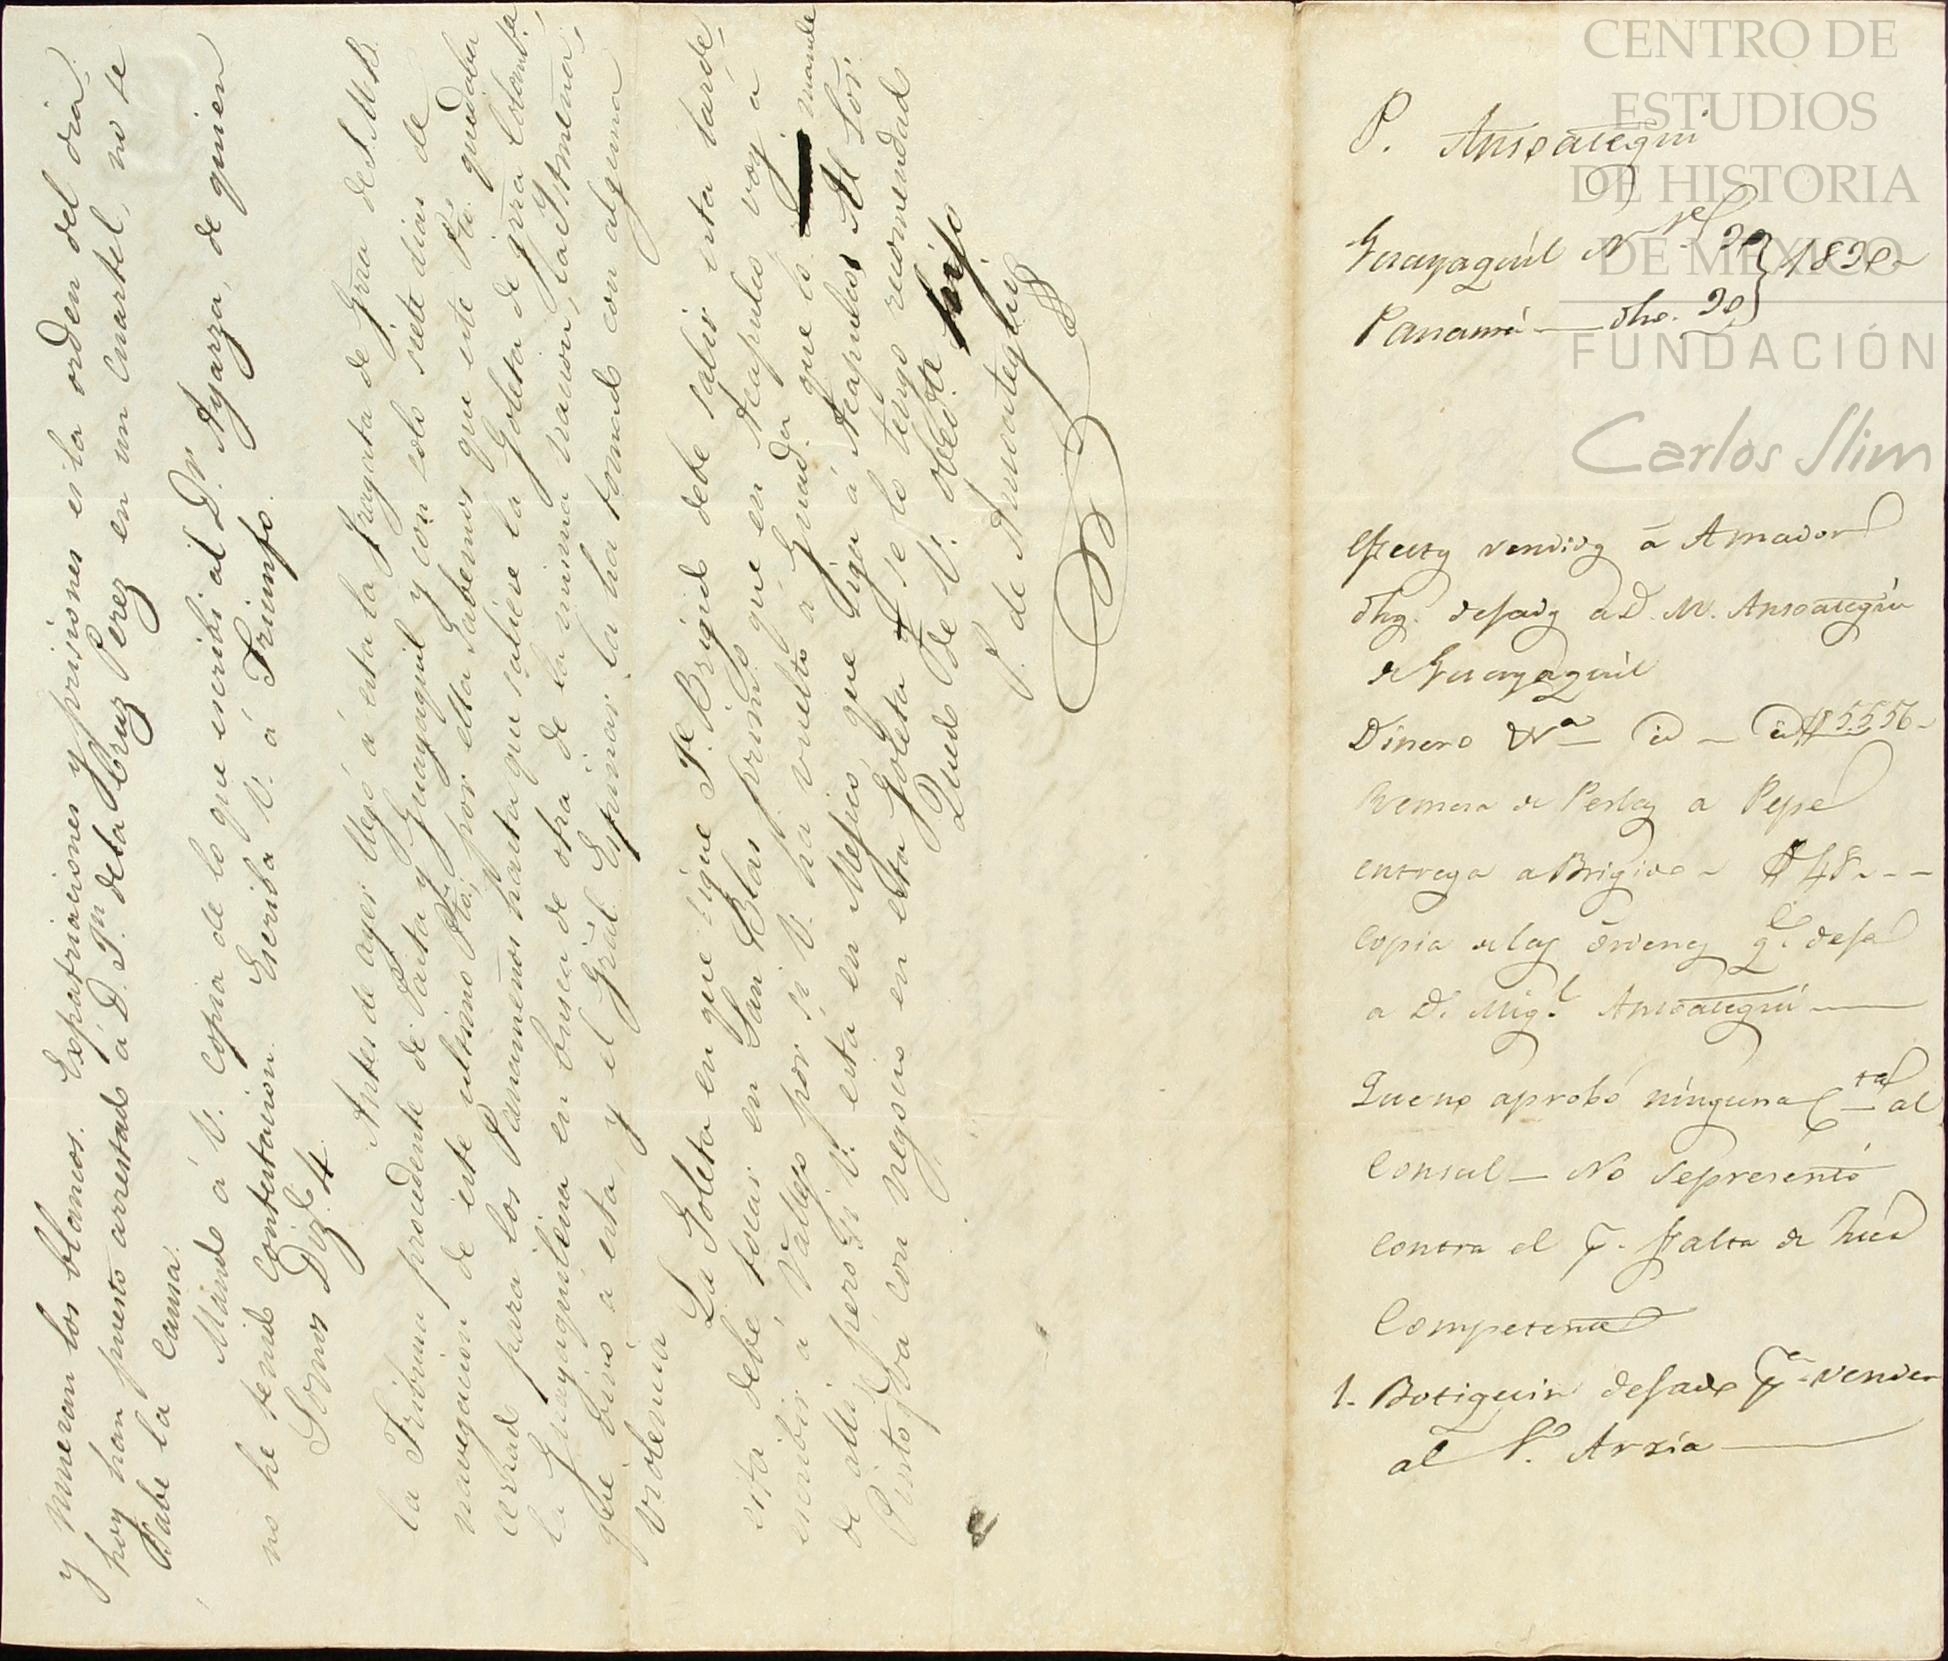 y mueran los blancos. Expatriaciones y prisiones es la orden del dia,
hoy han puesto arrestado a D. Jn. de la Cruz Perez en un cuartel, no se
Sabe la Causa.
Mando á V. copia de lo que escribi al Dr. Ayarza, de quien
no he tenido contestacion. Escriba V. á Triunfo.
Somos Dize. 4
Antes de ayer llegó á esta la fragata de Grra de S.M.B.
la Tribuna procedente de Paita y Guayaquil y con solo siete dias de
navegacion de este ultimo Pto; por ella sabemos que este Pto. quedaba
cerrado para los Panameños hasta que saliese la Goleta de grra Colomba.
la Guayaquileña en busca de otra de la misma nacion, la Istmeña,
que vino a esta, y el Gral. Espinar la ha tomado con alguna
violencia
La Goleta en que sigue Je. Brigido debe salir esta tarde,
esta debe tocar en San Blas primero que en Acapulco voy á
escribir a Vallejo por si V. ha vuelto a Guada. que lo mande
de alli pero si V. está en Mejico, que siga á Acapulco. Al Sor.
Pinto, va con negocio en esta Goleta y se lo tengo recomendado
Quedo de V. obedte. hijo
P. de Ansoategui
P. Ansoategui
Guayaquil Nre. 20
Panamá — dho. 20 } 1830
Efectos vendidos á Amador
dhos. dejados a D. M. Ansoategui
de Guayaquil
Dinero id — id $ 5556-
Remesa de Perlas a Pepe
entrega a Brigido — $ 48 - - -
Copia de las órdenes qe. dejé
a D. Migl. Ansoategui —
Que no aprobó ninguna Cta. al
Consul — No se presentó
contra el p. falta de Juez
Competente
1. Botiquin dejado pa. vender
al Sr. Arzia —
CENTRO DE
ESTUDIOS
DE HISTORIA
DE MÉXICO
FUNDACIÓN
Carlos Slim